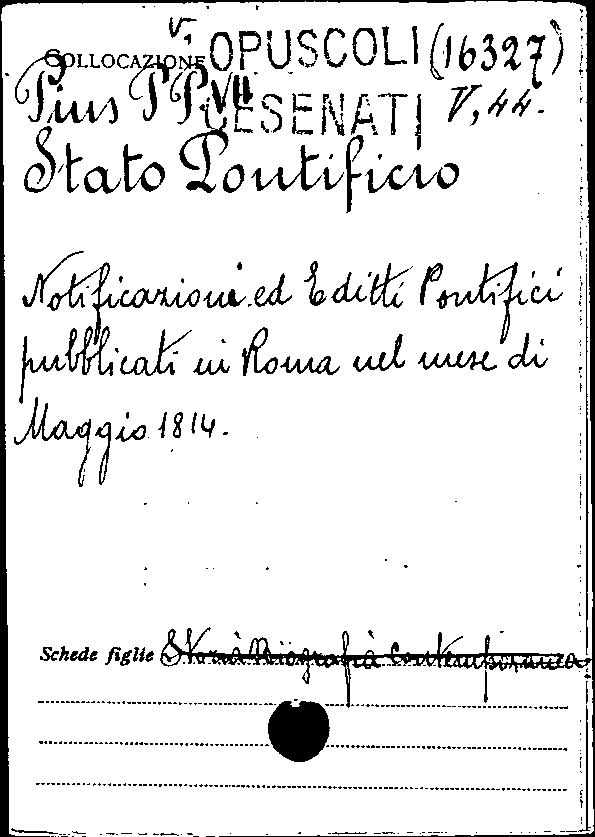 V.
COLLOCAZIONE OPUSCOLI (16327)
Pius PP VII CESENATI V, 44.
Stato Pontificio
Notificazioni ed Editti Pontifici
pubblicati in Roma nel mese di
Maggio 1814.
Schede figlie Storia Biografia Contemporanea